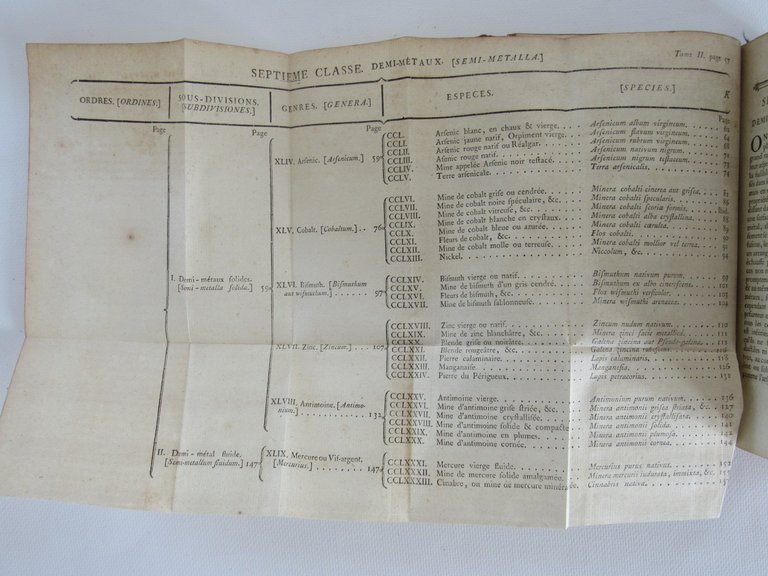 Tome II. page 57
SEPTIEME CLASSE. DEMI-MÉTAUX. [SEMI-METALLA.]
ORDRES. [ORDINES.] SOUS-DIVISIONS. [SUBDIVISIONES.] GENRES. [GENERA.] ESPECES. [SPECIES.] K
Page Page Page Page
I. Demi-métaux solides. [Semi-metalla solida.] 59
XLIV. Arsenic. [Arsenicum.] 59
CCL. Arsenic blanc, en chaux & vierge. Arsenicum album virgineum. 62
CCLI. Arsenic jaune natif, Orpiment vierge. Arsenicum flavum virgineum. 64
CCLII. Arsenic rouge natif ou Réalgar. Arsenicum rubrum virgineum. 68
CCLIII. Arsenic noir natif. Arsenicum nativum nigrum. 71
CCLIV. Mine appelée Arsenic noir testacé. Arsenicum nigrum testaceum. 73
CCLV. Terre arsenicale. Terra arsenicalis. 74
XLV. Cobalt. [Cobaltum.] 76
CCLVI. Mine de cobalt grise ou cendrée. Minera cobalti cinerea aut grisea. 82
CCLVII. Mine de cobalt noire spéculaire, &c. Minera cobalti specularis.
CCLVIII. Mine de cobalt vitreuse, &c. Minera cobalti scoriæ formis. Ibid.
CCLIX. Mine de cobalt blanche en crystaux. Minera cobalti alba crystallina.
CCLX. Mine de cobalt bleue ou azurée. Minera cobalti cærulea.
CCLXI. Fleurs de cobalt, &c. Flos cobalti. 90
CCLXII. Mine de cobalt molle ou terreuse. Minera cobalti mollior vel terrea. 91
CCLXIII. Nickel. Niccolum, &c. 94
XLVI. Bismuth. [Bismuthum aut wismuthum.] 97
CCLXIV. Bismuth vierge ou natif. Bismuthum nativum purum. 99
CCLXV. Mine de bismuth d'un gris cendré. Bismuthum ex albo cinerscens.
CCLXVI. Fleurs de bismuth, &c. Flos wismuthi versicolor.
CCLXVII. Mine de bismuth sablonneuse. Minera wismuthi arenacea. 104
XLVII. Zinc. [Zincum.] 107
CCLXVIII. Zinc vierge ou natif. Zincum nudum nativum. 110
CCLXIX. Mine de zinc blanchâtre, &c. Minera zinci facie metallicâ. 112
CCLXX. Blende grise ou noirâtre. Galena zincina aut Pseudo-galena. 115
CCLXXI. Blende rougeâtre, &c. Galena zincina rubescens.
CCLXXII. Pierre calaminaire. Lapis calaminaris. 121
CCLXXIII. Manganaise. Manganesia. 126
CCLXXIV. Pierre du Périgueux. Lapis petracorius. 131
XLVIII. Antimoine. [Antimonium.] 132
CCLXXV. Antimoine vierge. Antimonium purum nativum. 136
CCLXXVI. Mine d'antimoine grise striée, &c. Minera antimonii grisea striata, &c. 137
CCLXXVII. Mine d'antimoine crystallisée. Minera antimonii crystallisata. 140
CCLXXVIII. Mine d'antimoine solide & compacte. Minera antimonii solida. 141
CCLXXIX. Mine d'antimoine en plumes. Minera antimonii plumosa. 142
CCLXXX. Mine d'antimoine cornée. Minera antimonii cornea. 144
II. Demi-métal fluide. [Semi-metallum fluidum.] 147
XLIX. Mercure ou Vif-argent. [Mercurius.] 147
CCLXXXI. Mercure vierge fluide. Mercurius purus nativus. 152
CCLXXXII. Mine de mercure solide amalgamée. Minera mercurii indurata, immixta, &c.
CCLXXXIII. Cinabre, ou mine de mercure minérale. Cinnabris nativa.